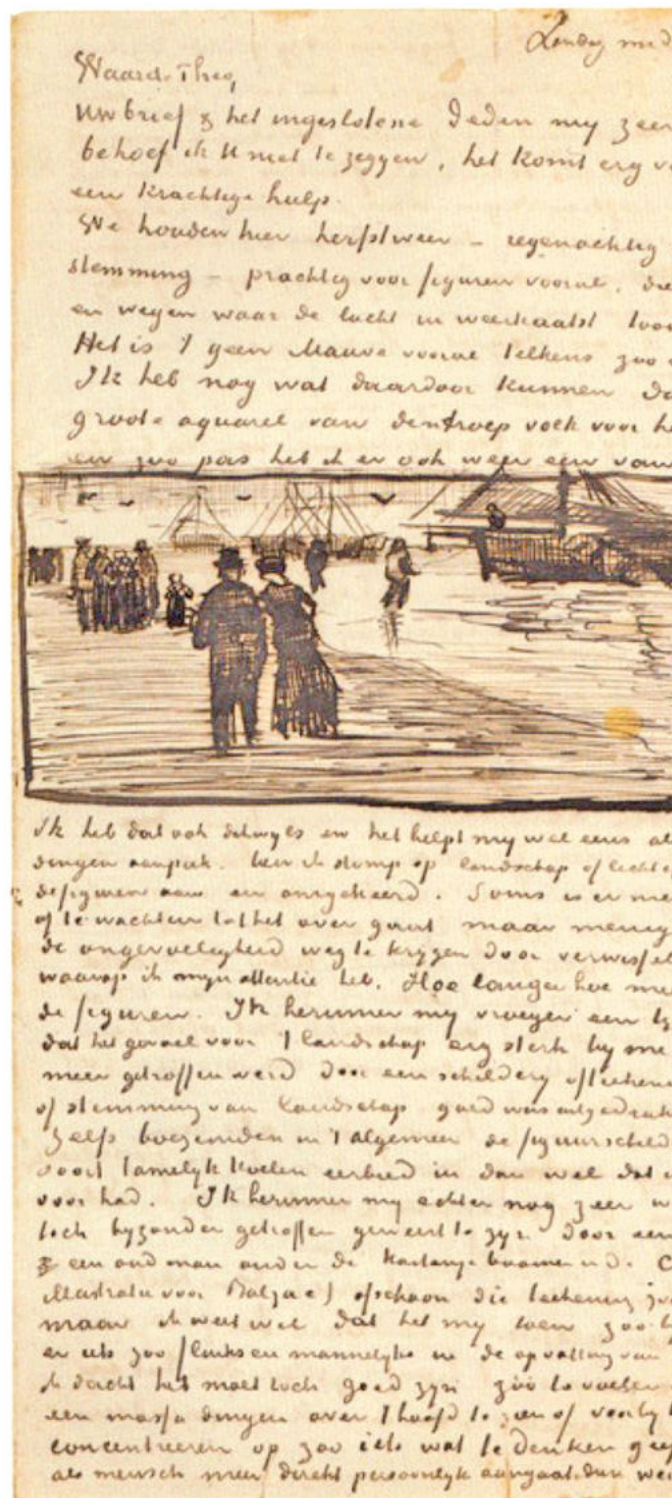 Zondag mid
Waarde Theo,
Uw brief & het ingeslotene deden my zeer
behoef ik U niet te zeggen, het komt erg v
een krachtige hulp.
We houden hier herfstweer – regenachtig
stemming – prachtig voor figuren vooral, die
en wegen waar de lucht in weerkaatst
Het is 't geen Mauve vooral telkens zoo
Ik heb nog wat daardoor kunnen do
groote aquarel van den troep volk voor h
en zoo pas heb ik er ook weer een van
Ik heb dat ook dikwyls en het helpt my wel eens al
dingen aanpak. ben ik stomp op landschap of licht
de figuren aan en omgekeerd. Soms is er nie
of te wachten tot het over gaat maar menig
de ongevoeligheid weg te krygen door verwissel
waarop ik myn attentie heb. Hoe langer hoe me
de figuren. Ik herinner my vroeger een ty
dat het gevoel voor 't landschap erg sterk by me
meer getroffen werd door een schildery of teekeni
of stemming van landschap goed was uitgedrukt
Zelfs boezemden in 't algemeen de figuurschild
soort tamelyk koelen eerbied in dan wel dat
voor had. Ik herinner my echter nog zeer
toch byzonder getroffen geweest te zyn door een
een oud man onder de kastanje boomen
illustratie voor Balzac) ofschoon die teekening
maar ik weet wel dat het my toen zoo
er iets zoo flinks en mannelyks in de opvatting van
ik dacht het moet toch goed zyn zóó te voelen
een massa dingen over 't hoofd te zien of voorby
concentreeren op zoo iets wat te denken geef
als mensch meer direkt persoonlyk aangaat dan wei